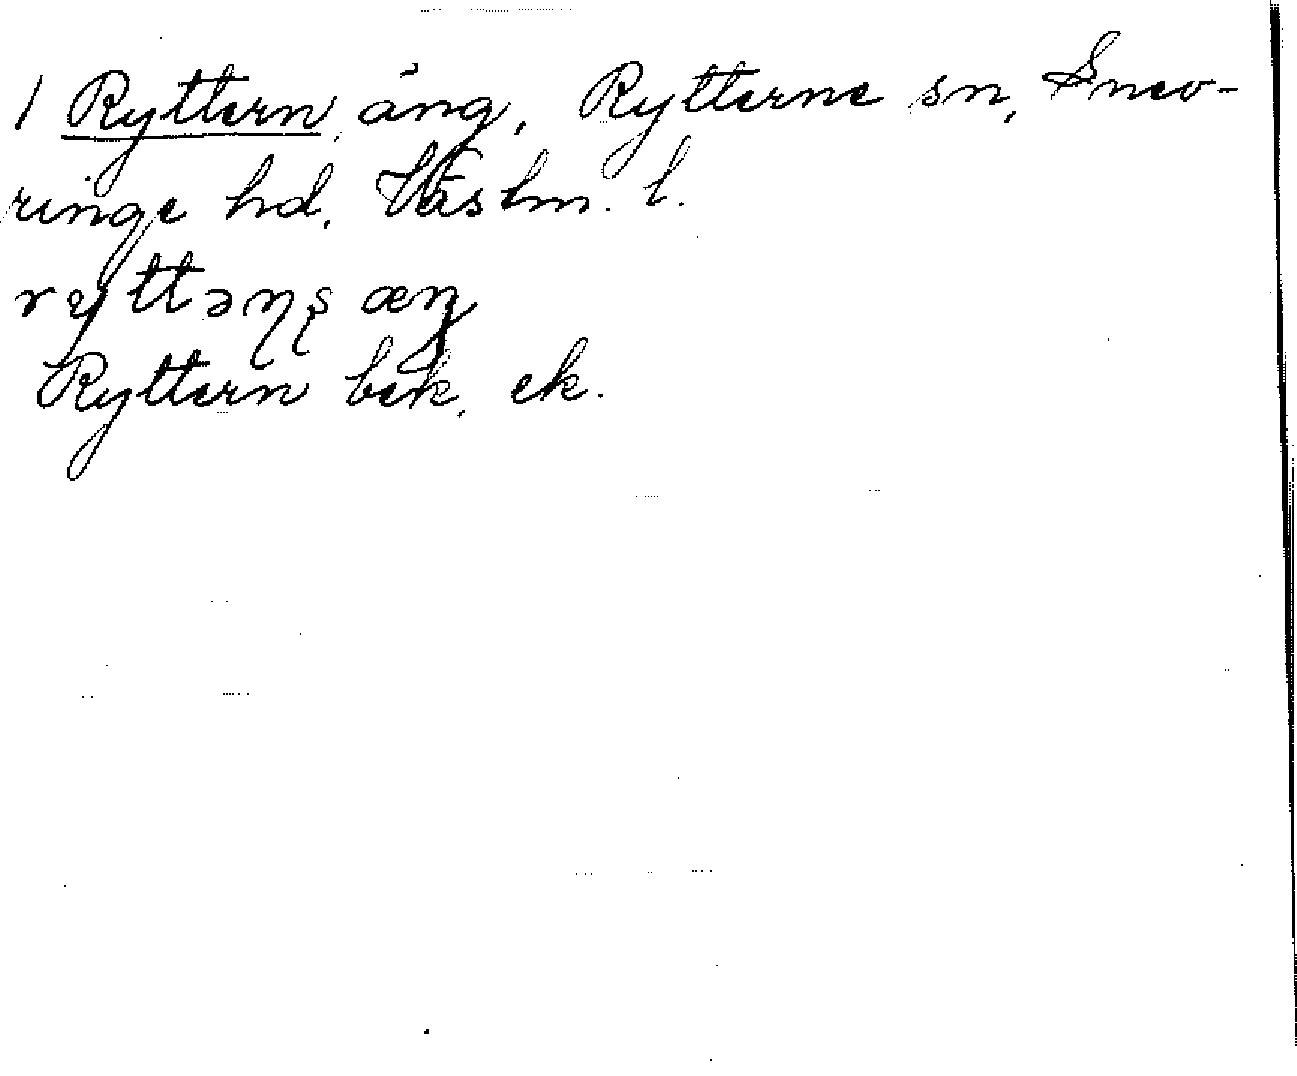 1 Ryttern äng, Rytterne sn, Snev-
ringe hd. Västm. l.
ryttəɳʂ æŋ
Ryttern bek. ek.